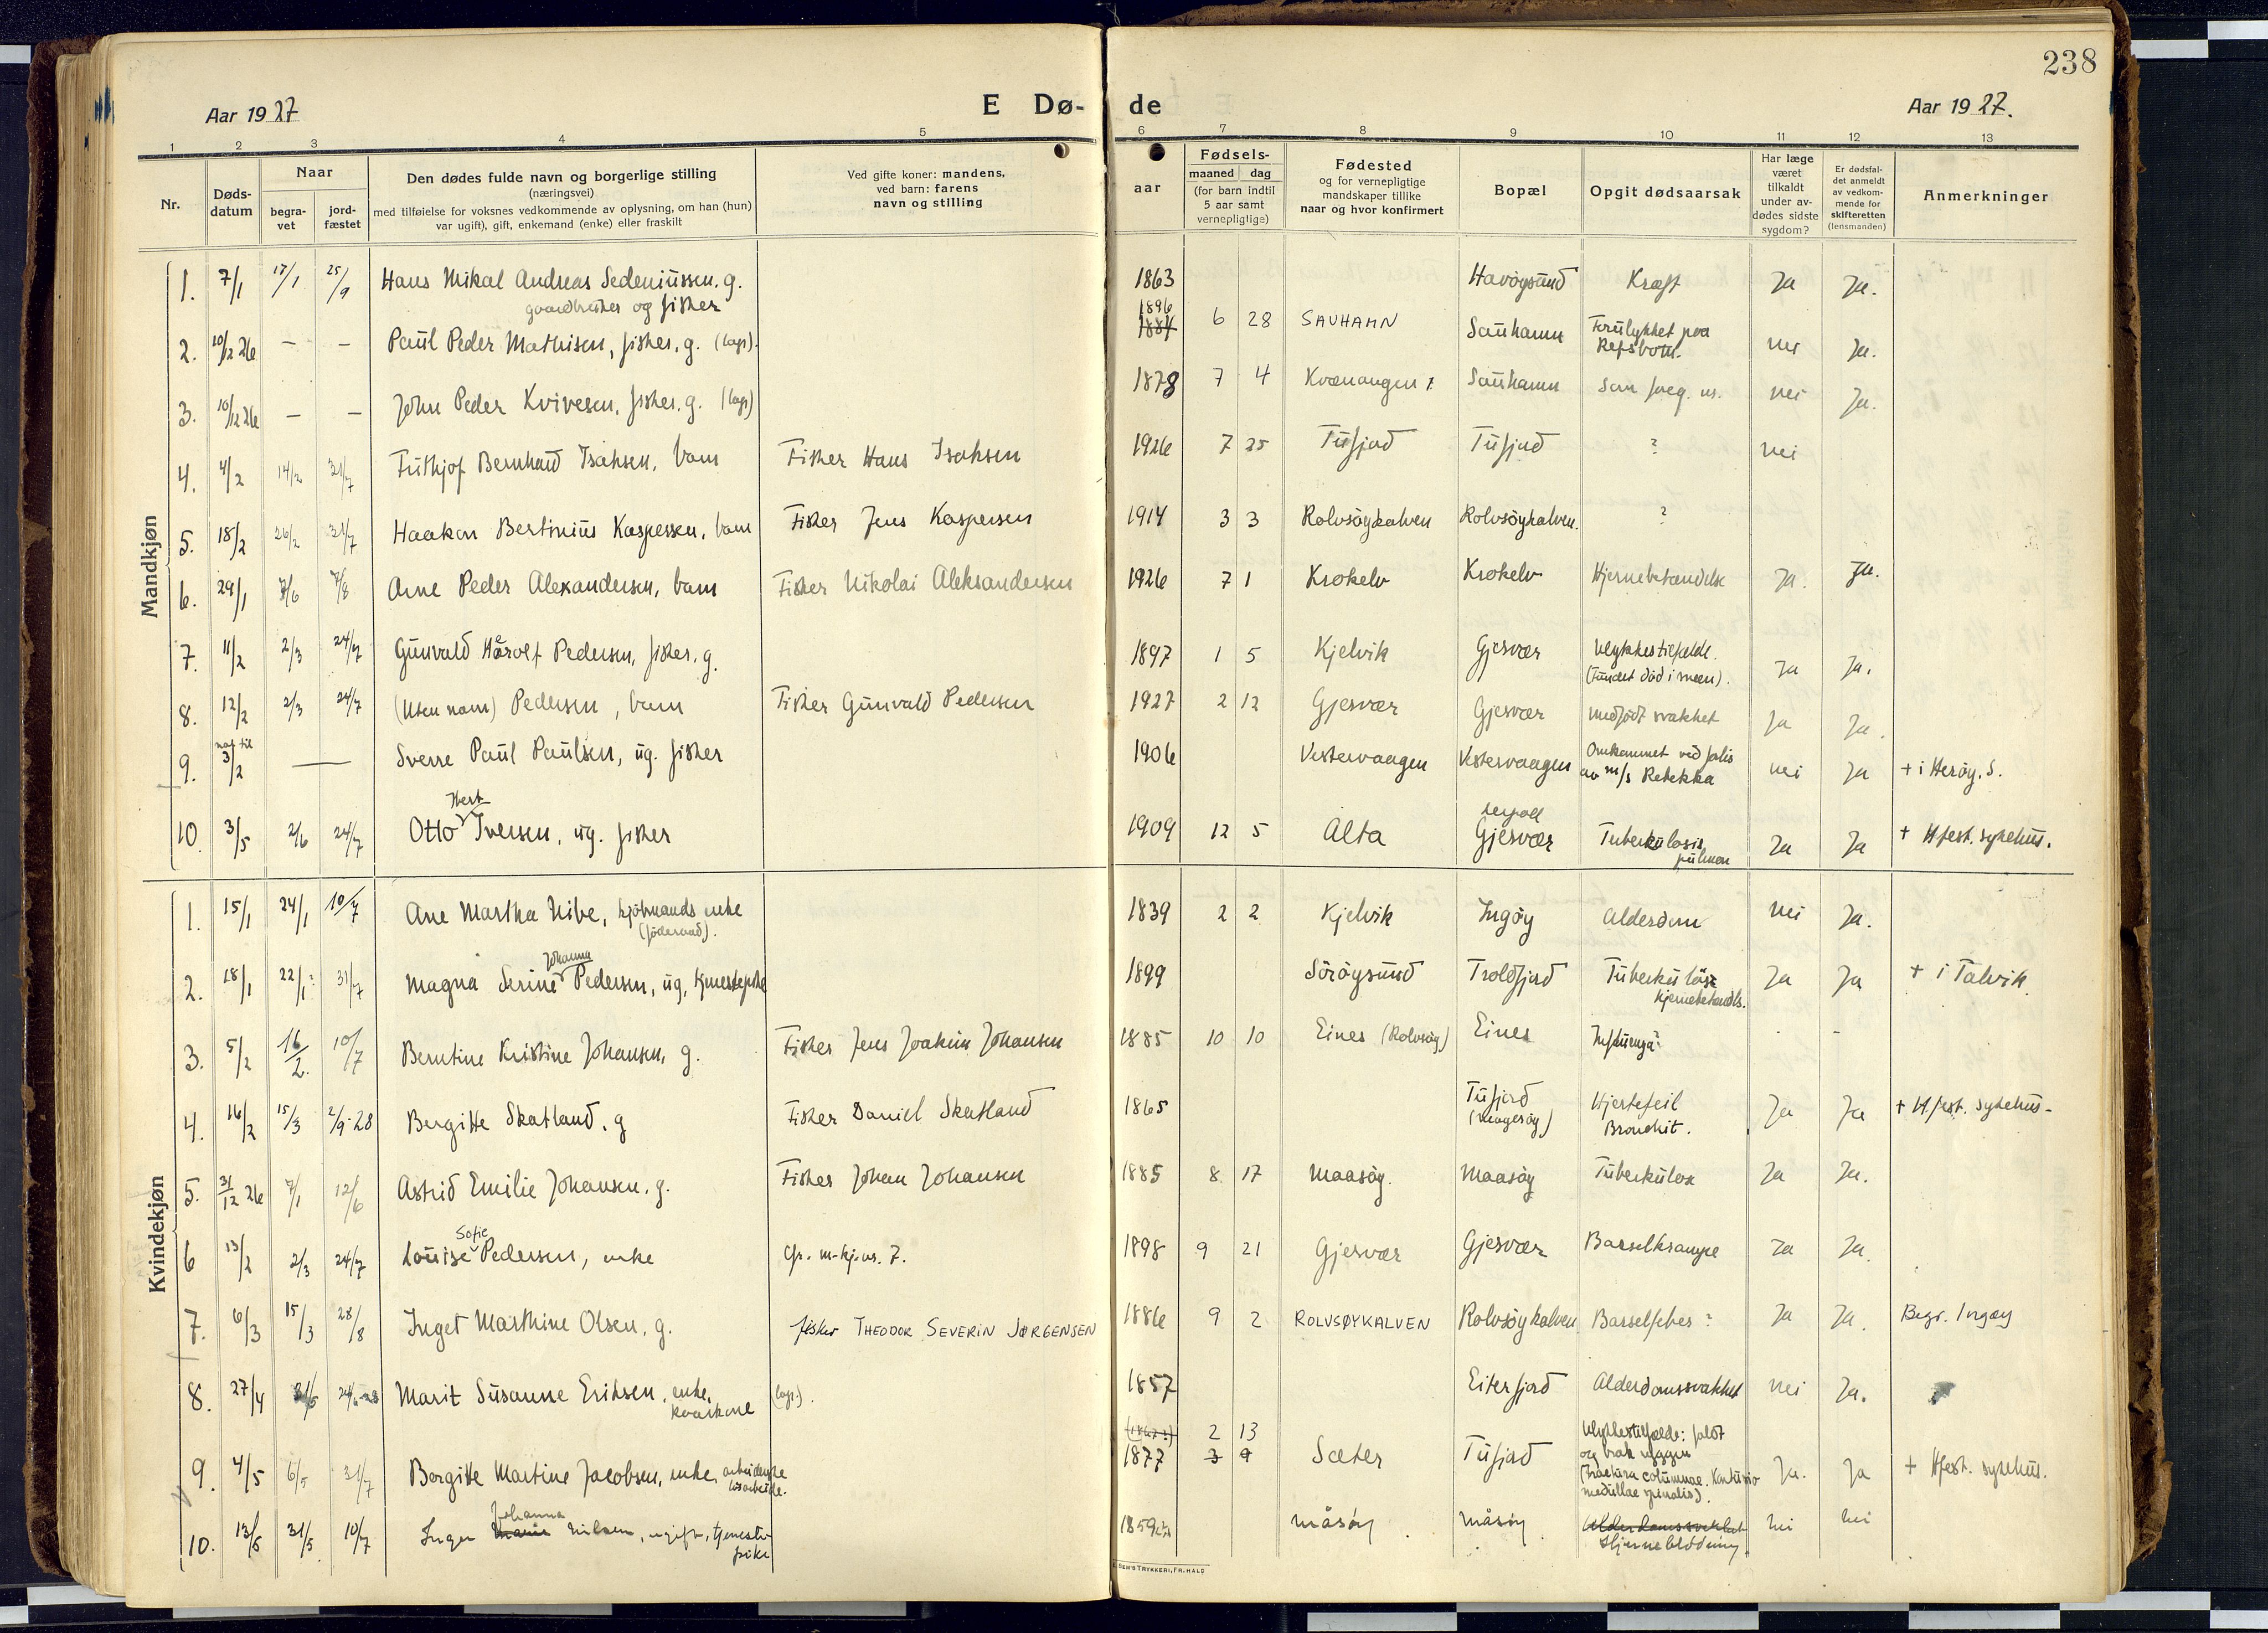 238
Aar 1927
E Dø-
de
Aar 1927.
1 2 3 4 5 6 7 8 9 10 11 12 13
Nr.
Døds-
datum
Naar
begra-
vet
jord-
fæstet
Den dødes fulde navn og borgerlige stilling
(næringsvei)
med tilføielse for voksnes vedkommende av oplysning, om han (hun)
var ugift), gift, enkemand (enke) eller fraskilt
Ved gifte koner: mandens,
ved barn: farens
navn og stilling
aar
Fødsels-
maaned dag
(for barn indtil
5 aar samt
vernepligtige)
Fødested
og for vernepligtige
mandskaper tillike
naar og hvor konfirmert
Bopæl
Opgit dødsaarsak
Har læge
været
tilkaldt
under av-
dødes sidste
sygdom?
Er dødsfal-
det anmeldt
av vedkom-
mende for
skifteretten
(lensmanden)
Anmerkninger
Mandkjøn
1. 7/1 17/1 25/9 Hans Mikal Andreas Sedeniussen. g. 1863 Havøysund Kræft Ja Ja.
gaardbruker og fisker
2. 10/12 26 — — Paul Peder Mathisen, fisker, g. (lap). 1896 1884 6 28 SAUHAMN Sauhamn Forulykket paa
Refsbotn. nei Ja.
3. 10/12 26 — — John Peder Kvivesen, fisker. g. (lap) 1878 7 4 Kvænangen Sauhamn Som foreg. nei Ja.
4. 4/2 14/2 31/7 Frithjof Bernhard Isaksen, barn Fisker Hans Isaksen 1926 7 25 Tufjord Tufjord ? nei
5. 18/2 26/2 31/7 Haakon Bertinius Kaspersen, barn Fisker Jens Kaspersen 1914 3 3 Rolvsøykalven Rolvsøykalven. ?
6. 29/1 7/6 7/8 Arne Peder Alexandersen, barn Fisker Nikolai Aleksandersen 1926 7 1 Krokelv Krokelv Hjernebetændelse Ja. Ja.
7. 11/2 2/3 24/7 Gunvald Harolf Pedersen, fisker. g. 1897 1 5 Kjelvik Gjesvær Ulykkestilfælde.
(Fundet død i sneen). Ja Ja.
8. 12/2 2/3 24/7 (Uten navn) Pedersen, barn Fisker Gunvald Pedersen 1927 2 12 Gjesvær Gjesvær medfødt svakhet Ja Ja.
9. nat til 3/2 — Sverre Paul Paulsen, ug. fisker 1906 Vestervaagen Vestervaagen Omkommet ved forlis
av m/s Rebekka nei Ja + i Herøy. S.
10. 3/5 2/6 24/7 Otto Iversen, ug. fisker 1909 12 5 Alta Gjesvær Tuberkulosis
pulmon Ja Ja + Hfest. sykehus.
Kvindekjøn
1. 15/1 24/1 10/7 Ane Martha Nibe, kjøbmands enke 1839 2 2 Kjelvik Ingøy Alderdom nei Ja.
(føderaad).
2. 18/1 22/1? 31/7 Magna Serine Johanna Pedersen, ug, tjenestepike 1899 Sørøysund Troldfjord Tuberkuløs
hjernebetændelse. Ja Ja + i Talvik
3. 5/2 16/2. 10/7 Berntine Kristine Johansen, g. Fisker Jens Joakim Johansen 1885 10 10 Eines (Rolvsøy) Eines Influenza?
4. 16/2 15/3 2/9-28 Bergitte Skatland. g Fisker Daniel Skatland 1865 Tufjord Hjertefeil
Bronchit. Ja Ja + Hfest. sykehus-
5. 31/12 26 7/1 12/6 Astrid Emilie Johansen. g. Fisker Johan Johansen 1885 8 17 Maasøy. Maasøy Tuberkulose Ja Ja.
6 13/2 2/3 24/7 Louise Sofie Pedersen, enke Cfr. m-kj. nr. 7. 1898 9 21 Gjesvær Gjesvær Barselkrampe Ja Ja.
7. 6/3 15/3 28/8 Inget Marthine Olsen, g. fisker THEODOR SEVERIN JØRGENSEN 1886 9 2 ROLVSØYKALVEN Rolvsøykalven Barselfeber? Ja Ja. Begr. Ingøy
8. 27/4 Marit Susanne Eriksen, enke, (lap). 1857 Eiterfjord Alderdomssvakhet nei Ja.
9. 4/5 6/5 31/7 Bergitte Martine Jacobsen, enke, 1877 2 13 Sæter Tufjord Ulykkestilfælde: faldt
og brak ryggen
(Fractura columnae. Kontusio
medullae spinalis). Ja. Ja + Hfest. sykehus.
10. 13/5 31/5 10/7 Inger Johanna Nilsen, ugift, tjeneste-
pike 1859 Måsøy Måsøy Alderdomssvakhet
Hjerneblødning. Nei Nei
SEN'S TRYKKERI, FR.HALD